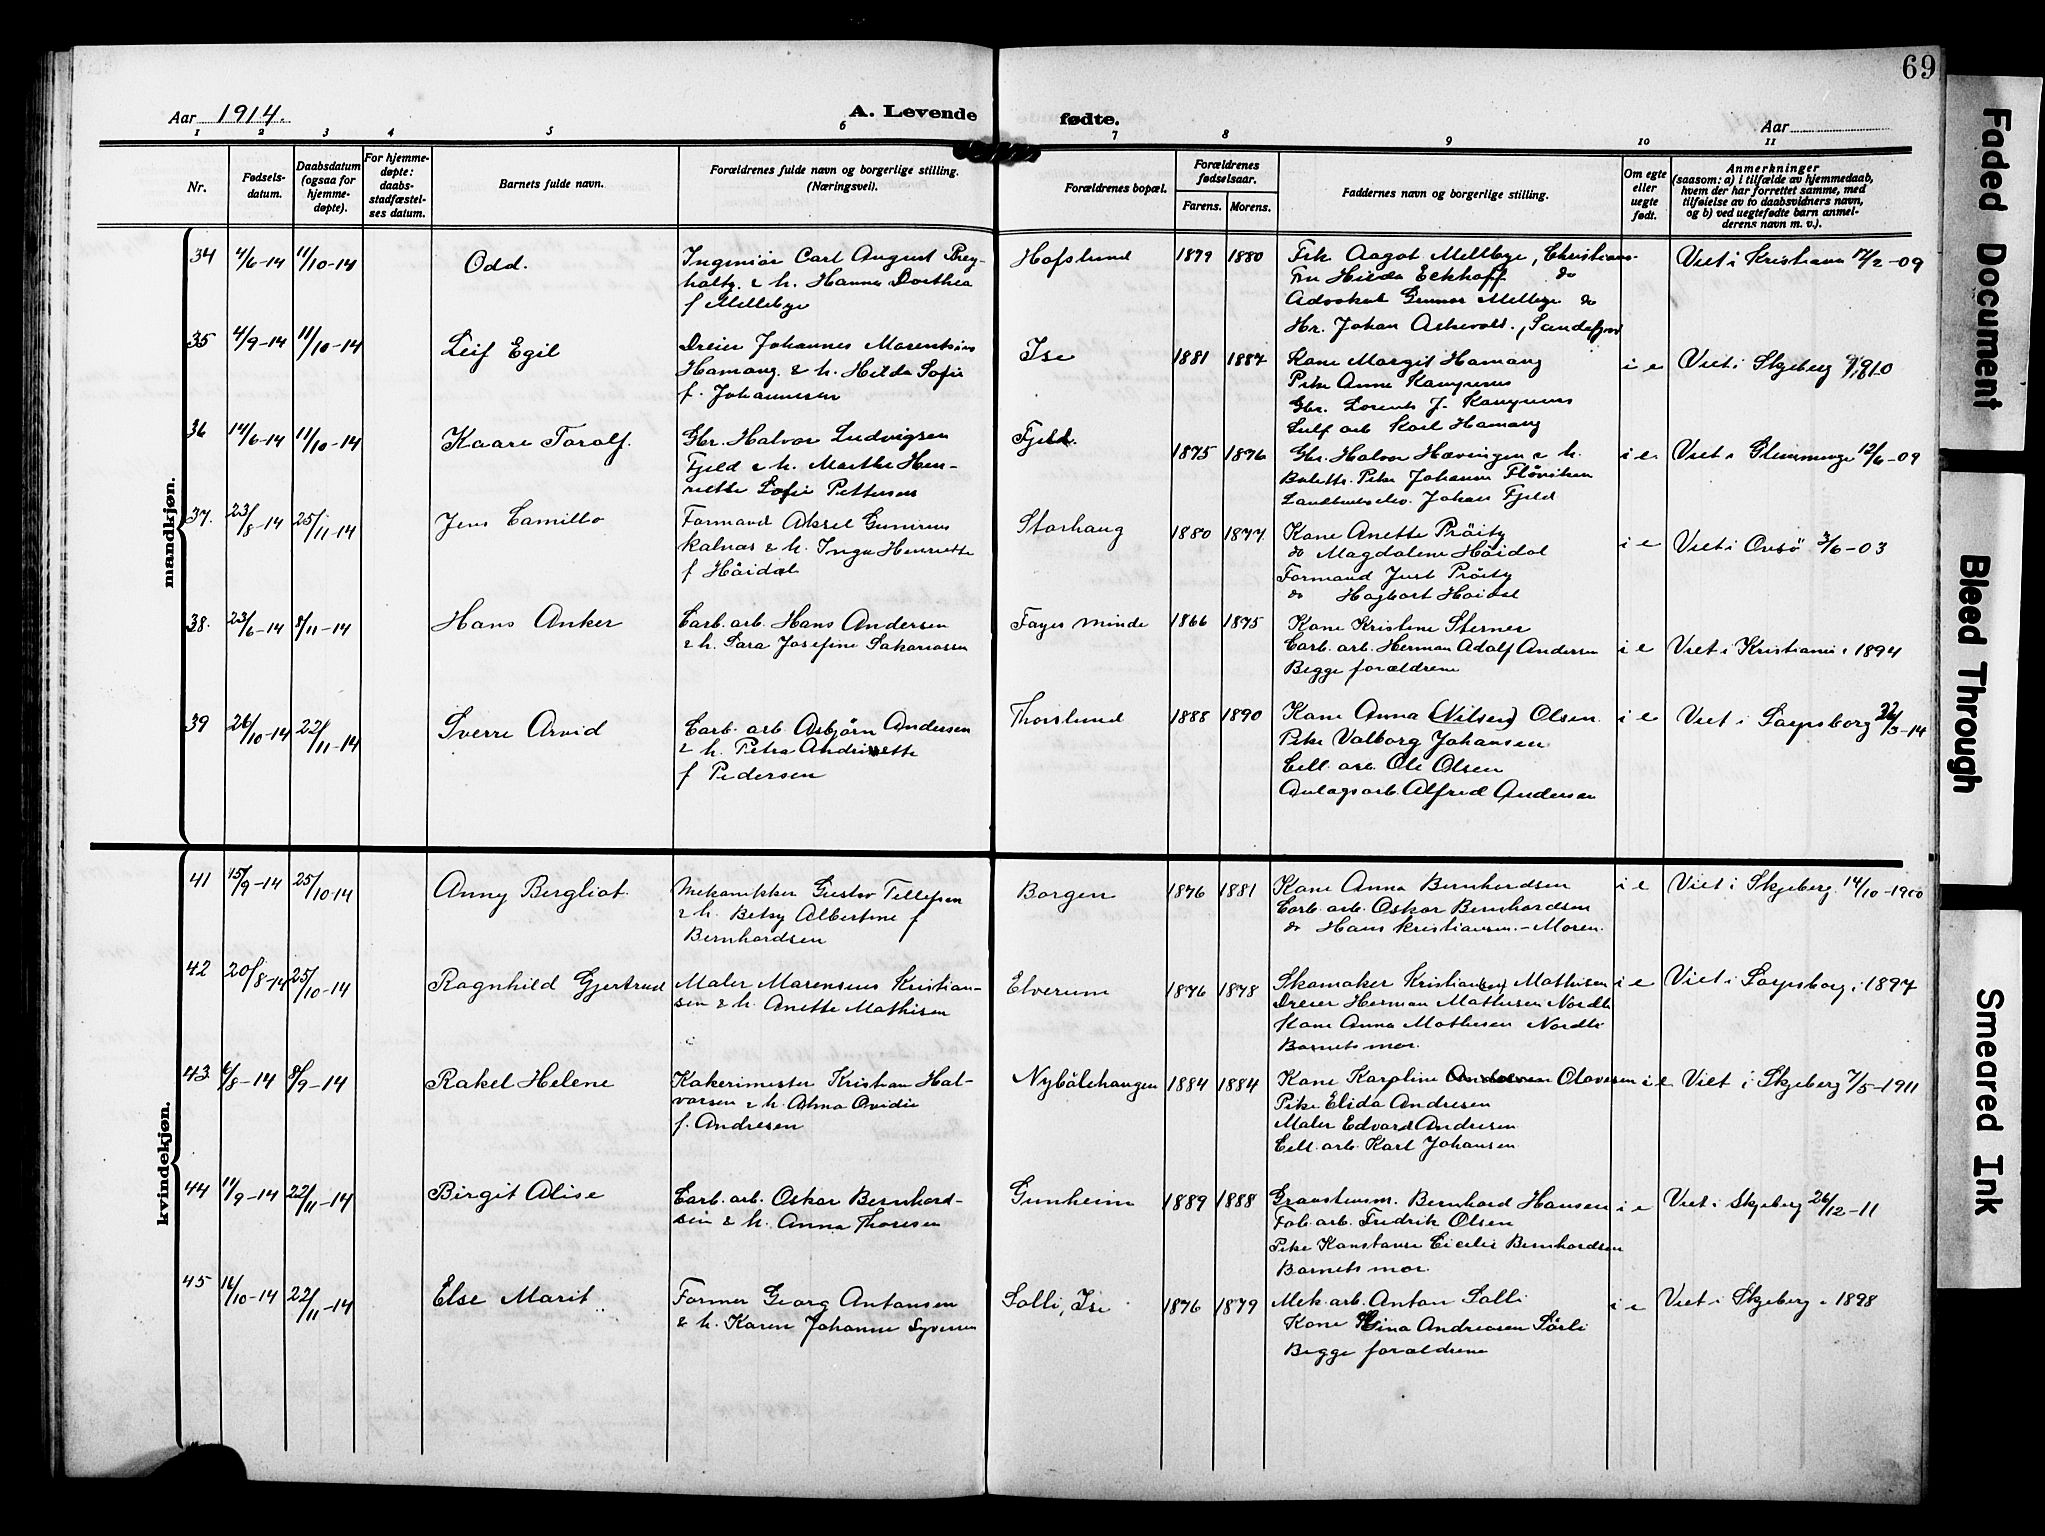 69
Aar 1914. A. Levende fødte. Aar
1 2 3 4 5 6 7 8 9 10 11
Nr. Fødsels-datum. Daabsdatum (ogsaa for hjemme-døpte). For hjemme-døpte: daabs-stadfæstel-ses datum. Barnets fulde navn. Forældrenes fulde navn og borgerlige stilling. (Næringsvei). Forældrenes bopæl. Forældrenes fødselsaar. Farens. Morens. Faddernes navn og borgerlige stilling. Om egte eller uegte født. Anmerkninger (saasom: a) i tilfælde av hjemmedaab, hvem der har forrettet samme, med tilføielse av to daabsvidners navn, og b) ved uegtefødte barn anmel-derens navn m. v.).
mandkjøn.
34 4/6-14 11/10-14 Odd. Ingeniør Carl August Hofslund 1879 1880 Frk Aagot Mellbye, Christiania Viet i Kristiania 17/2-09
& h. Hanna Dorthea Fru Hilda Eckhoff do
f Mellebye Advokat Gunnar Mellbye do
Hr. Johan Askevold, Sandefjord
35 4/9-14 11/10-14 Leif Egil Dreier Johannes Marentsius Ise 1881 1887 Kone Margit Hamang i e Viet i Skjeberg 1910
Hamang & h. Hilda Sofie Pike Anna Kampenes
f. Johannesen Gbr. Lorents J. Kampenes
Sulf arb Karl Hamang
36 14/6-14 11/10-14 Kaare Toralf. Gbr. Halvor Ludvigsen Fjeld. 1875 1876 Gbr. Halvor Hævingen & h. i e Viet i Glemminge 12/6-09
Fjeld & h. Marthe Hen- Pike Johanne Fløviken
riette Sofie Pettersen Johan Fjeld
37. 23/8-14 25/11-14 Jens Camillo Formand Aksel Gunerius Storhaug 1880 1877 Kone Anette Pröitz i e Viet i Onsö 3/6-03
Kalnæs & h. Inga Henriette do Magdalene Höidal
f Höidal Formand Just Pröitz
do Hagbart Höidal
38. 23/6-14 8/11-14 Hans Anker Carb. arb. Hans Andersen Fagerminde 1866 1875 Kone Kristine Sterner i e Viet i Kristiania i 1894
& h. Sara Josefine Sakariassen Carb. arb. Herman Adolf Andersen
Begge forældrene
39 26/10-14 22/11-14 Sverre Arvid Carb. arb. Asbjørn Andersen Thorslund 1888 1890 Kone Anna (Nilsen) Olsen i e Viet i Sarpsborg 22/3-14
& h. Petra Andrinette Pike Valborg Johansen
f Pedersen Cell. arb. Ole Olsen
Anlagsarb. Alfred Andersen
kvindekjøn.
41 15/9-14 25/10-14 Anny Bergliot. Mekanikker Gustav Tellefsen Borgen 1876 1881 Kone Anna Bernhardsen i e Viet i Skjeberg 14/10-1900
& h. Betsy Albertine f Carb. arb. Oskar Bernhardsen
Bernhardsen do Hans Kristiansen. - Moren.
42 20/8-14 25/10-14 Ragnhild Gjertrud Maler Marensius Kristian- Elverum 1876 1878 Skomaker Kristian Mathisen i e Viet i Sarpsborg i 1897
sen & h. Anette Mathisen Dreier Herman Mathisen Nordli
Kone Anna Mathisen Nordli
Barnets mor.
43 6/8-14 8/9-14 Rakel Helene Kokerimester Kristian Hal- Nybölehaugen 1884 1884 Kone Karoline Olavesen i e Viet i Skjeberg 7/5-1911
vorsen & h. Alma Ovidie Pike Elida Andresen
f. Andresen Maler Edvard Andresen
Cell. arb. Karl Johansen
44 14/9-14 22/11-14 Birgit Alise Carb. arb. Oskar Bernhard- Gunheim 1889 1888 Gravstensm. Bernhard Hansen i e Viet i Skjeberg 26/12-11
sen & h. Anna Thoresen Fab. arb. Fredrik Olsen
Pike Konstanse Cicelie Bernhardsen
Barnets mor.
45 16/10-14 22/11-14 Else Marit Former Georg Antonsen Solli, Ise 1876 1879 Mek. arb. Anton Solli i e Viet i Skjeberg i 1898
& h. Karen Johanne Syversen Kone Lina Andreasen Sörli
Begge forældrene
Faded Document
Bleed Through
Smeared Ink